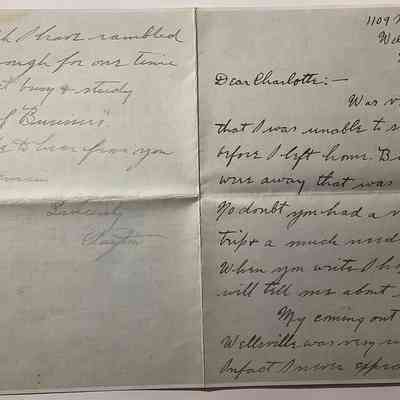 I have rambled
enough for one time
busy & study
of Business".
to hear from you
soon
Sincerely
Clayton
1109
Wel
Dear Charlotte:—
Was v
that I was unable to s
before I left home. Bu
were away that was
No doubt you had a
trip & a much need
When you write I ho
will tell me about
My coming out
Wellsville was very
Infact I never expec